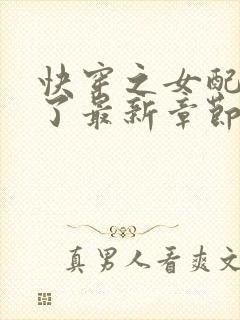 快穿之女配
了最新章节
真男人看爽文